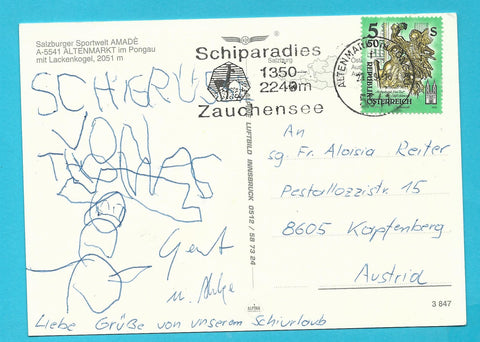 Salzburger Sportwelt AMADÈ
A-5541 ALTENMARKT im Pongau
mit Lackenkogel, 2051 m
SCHIGRÜ
VON
THOMAS
Gert
u.
Liebe Grüße von unserem Schiurlaub
Schiparadies
1350-
2240m
Zauchensee
ALTENMARKT
5 S
REPUBLIK
ÖSTERREICH
LUFTBILD INNSBRUCK 0512 / 58 73 24
An
sg. Fr. Aloisia Reiter
Pestallozzistr. 15
8605 Kapfenberg
Austria
ALPINA
3 847